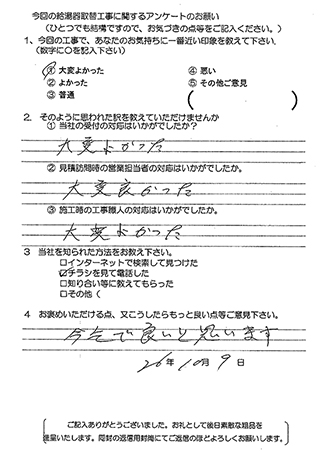 今回の給湯器取替工事に関するアンケートのお願い
(ひとつでも結構ですので、お気づきの点等をご記入ください。)
1、今回の工事で、あなたのお気持ちに一番近い印象を教えて下さい。
(数字に○を記入下さい)
① 大変よかった ④ 悪い
② よかった ⑤ その他ご意見
③ 普通 ( )
2. そのように思われた訳を教えていただけませんか
① 当社の受付の対応はいかがでしたか?
大変よかった
② 見積訪問時の営業担当者の対応はいかがでしたか。
大変良かった
③ 施工時の工事職人の対応はいかがでしたか。
大変よかった
3 当社を知られた方法をお教え下さい。
□インターネットで検索して見つけた
☑チラシを見て電話した
□知り合い等に教えてもらった
□その他 (
4 お褒めいただける点、又こうしたらもっと良い点等ご意見下さい。
今迄で良いと思います
26年 10月 9日
ご記入ありがとうございました。お礼として後日素敵な粗品を
進呈いたします。同封の返信用封筒にてご返信のほどよろしくお願いします。